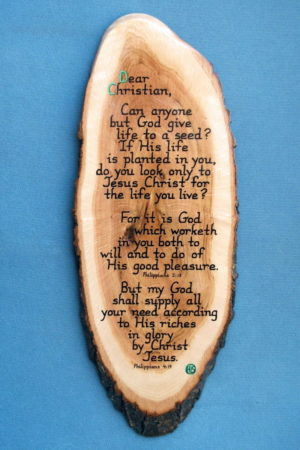 Dear
Christian,
Can anyone
but God give
life to a seed?
If His life
is planted in you,
do you look only to
Jesus Christ for
the life you live?
For it is God
which worketh
in you both to
will and to do of
His good pleasure.
Philippians 2:13
But my God
shall supply all
your need according
to His riches
in glory
by Christ
Jesus.
Philippians 4:19